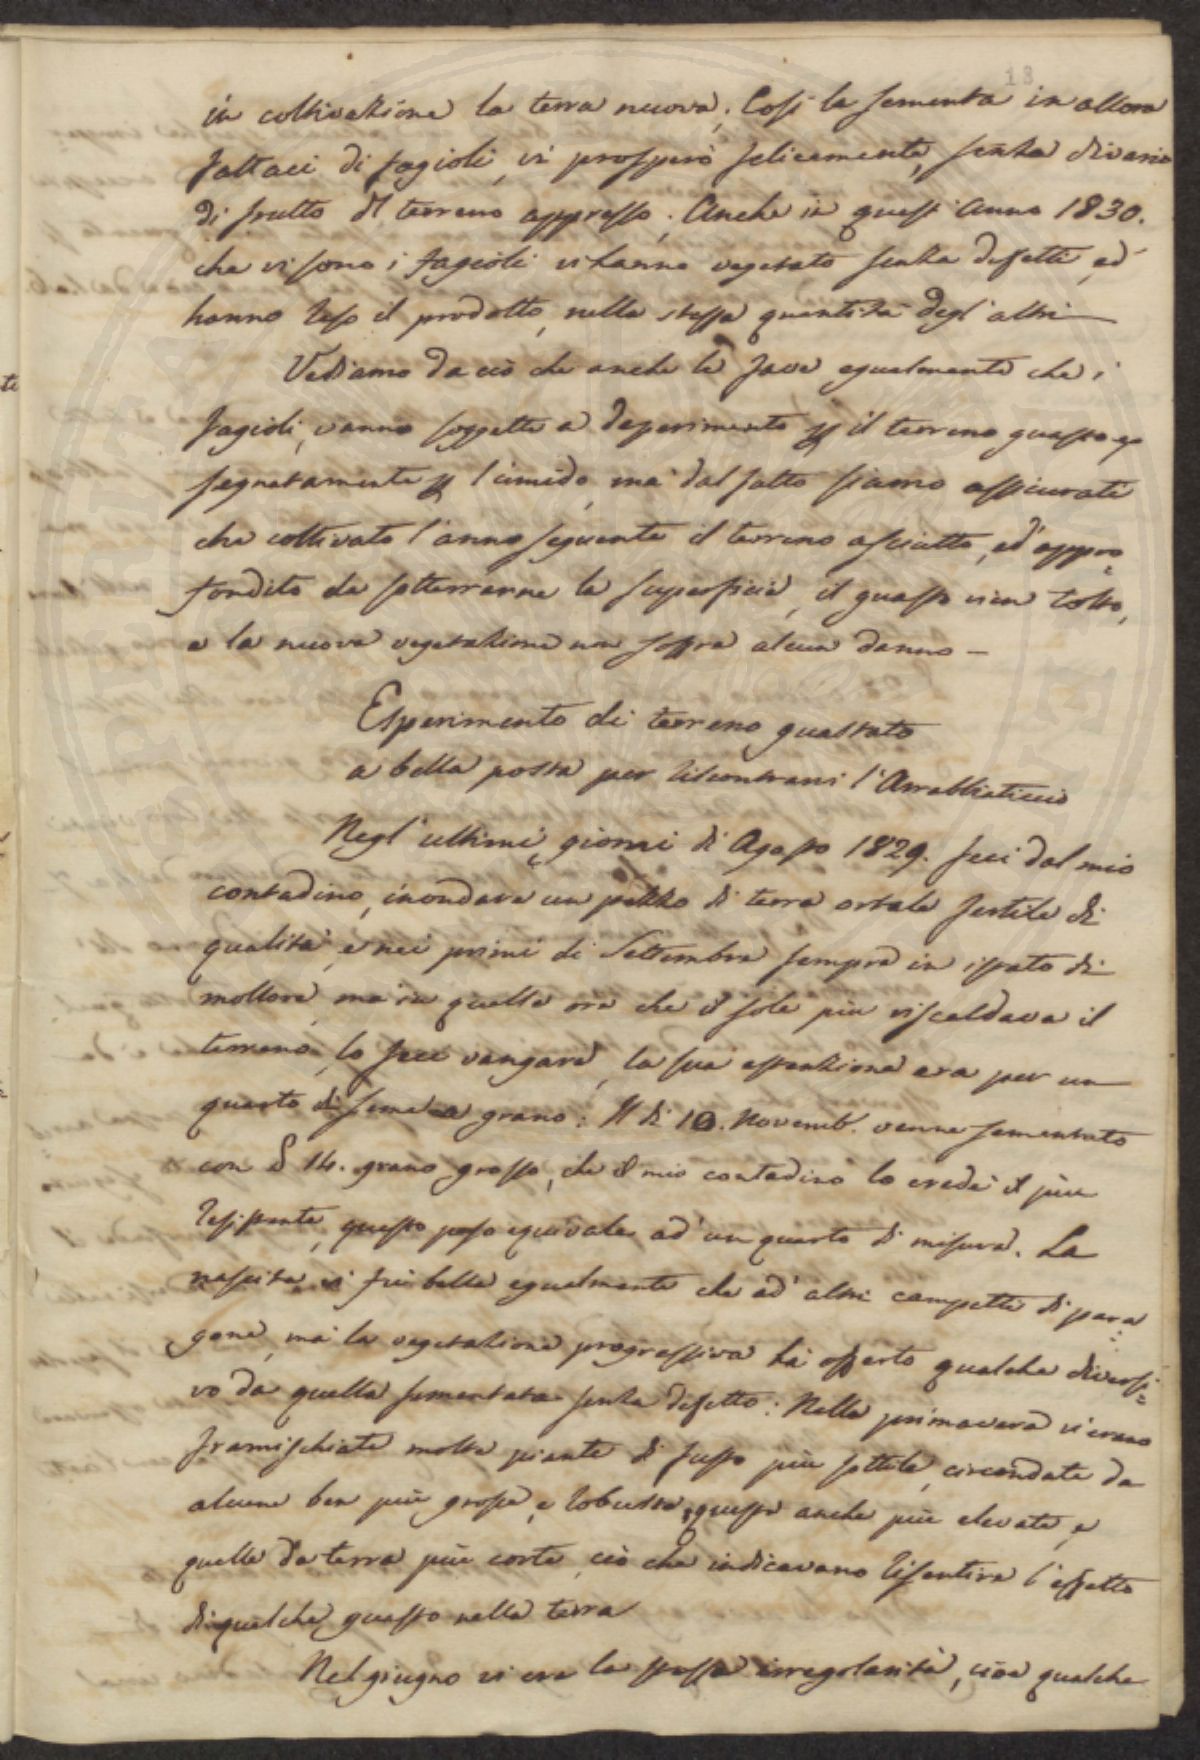 13
in coltivazione la terra nuova. Così la sementa in allora
fattaci di fagioli, vi prosperò felicemente, senza divario
di frutto dl terreno appresso. Anche in quest'anno 1830.
che vi sono i fagioli vi hanno vegetato senza difetti, ed
hanno reso il prodotto, nella stessa quantità degl'altri
Vediamo da ciò che anche le fave egualmente che i
fagioli, vanno soggette a deperimento p il terreno guasto, e
segnatamente p l'umido, ma dal fatto siamo assicurati
che coltivato l'anno seguente il terreno asciutto, ed appro=
fondito da sotterrarne la superficie, il guasto vien tolto,
e la nuova vegetazione non soffre alcun danno -
Esperimento di terreno guastato
a bella posta per riscontrarvi l'Arrabbiaticcio
Negl'ultimi giorni di Agosto 1829. feci dal mio
contadino, inondare un pezzo di terra ortale fertile di
qualità, e nei primi di Settembre sempre in istato di
mollore, ma in quelle ore che il sole più riscaldava il
terreno, lo feci vangare, la sua estenzione era per un
quarto di seme a grano: Il dì 10. Novemb. venne sementato
con 14. grano grosso, che il mio contadino lo crede il più
resistente, questo peso equivale ad un quarto di misura. La
nascita vi fù bella egualmente che ad altri campetti di para=
gone, ma la vegetazione progressiva hà offerto qualche diversi=
vo da quella sementata senza difetto: Nella primavera vi erano
framischiate molte piante di fusto più sottile, circondate da
alcune ben più grosse, e robuste, queste anche più elevate, e
quelle da terra più corte, ciò che indicavano risentire l'effetto
di qualche guasto nella terra
Nel giugno vi era la stessa irregolarità, cioè qualche